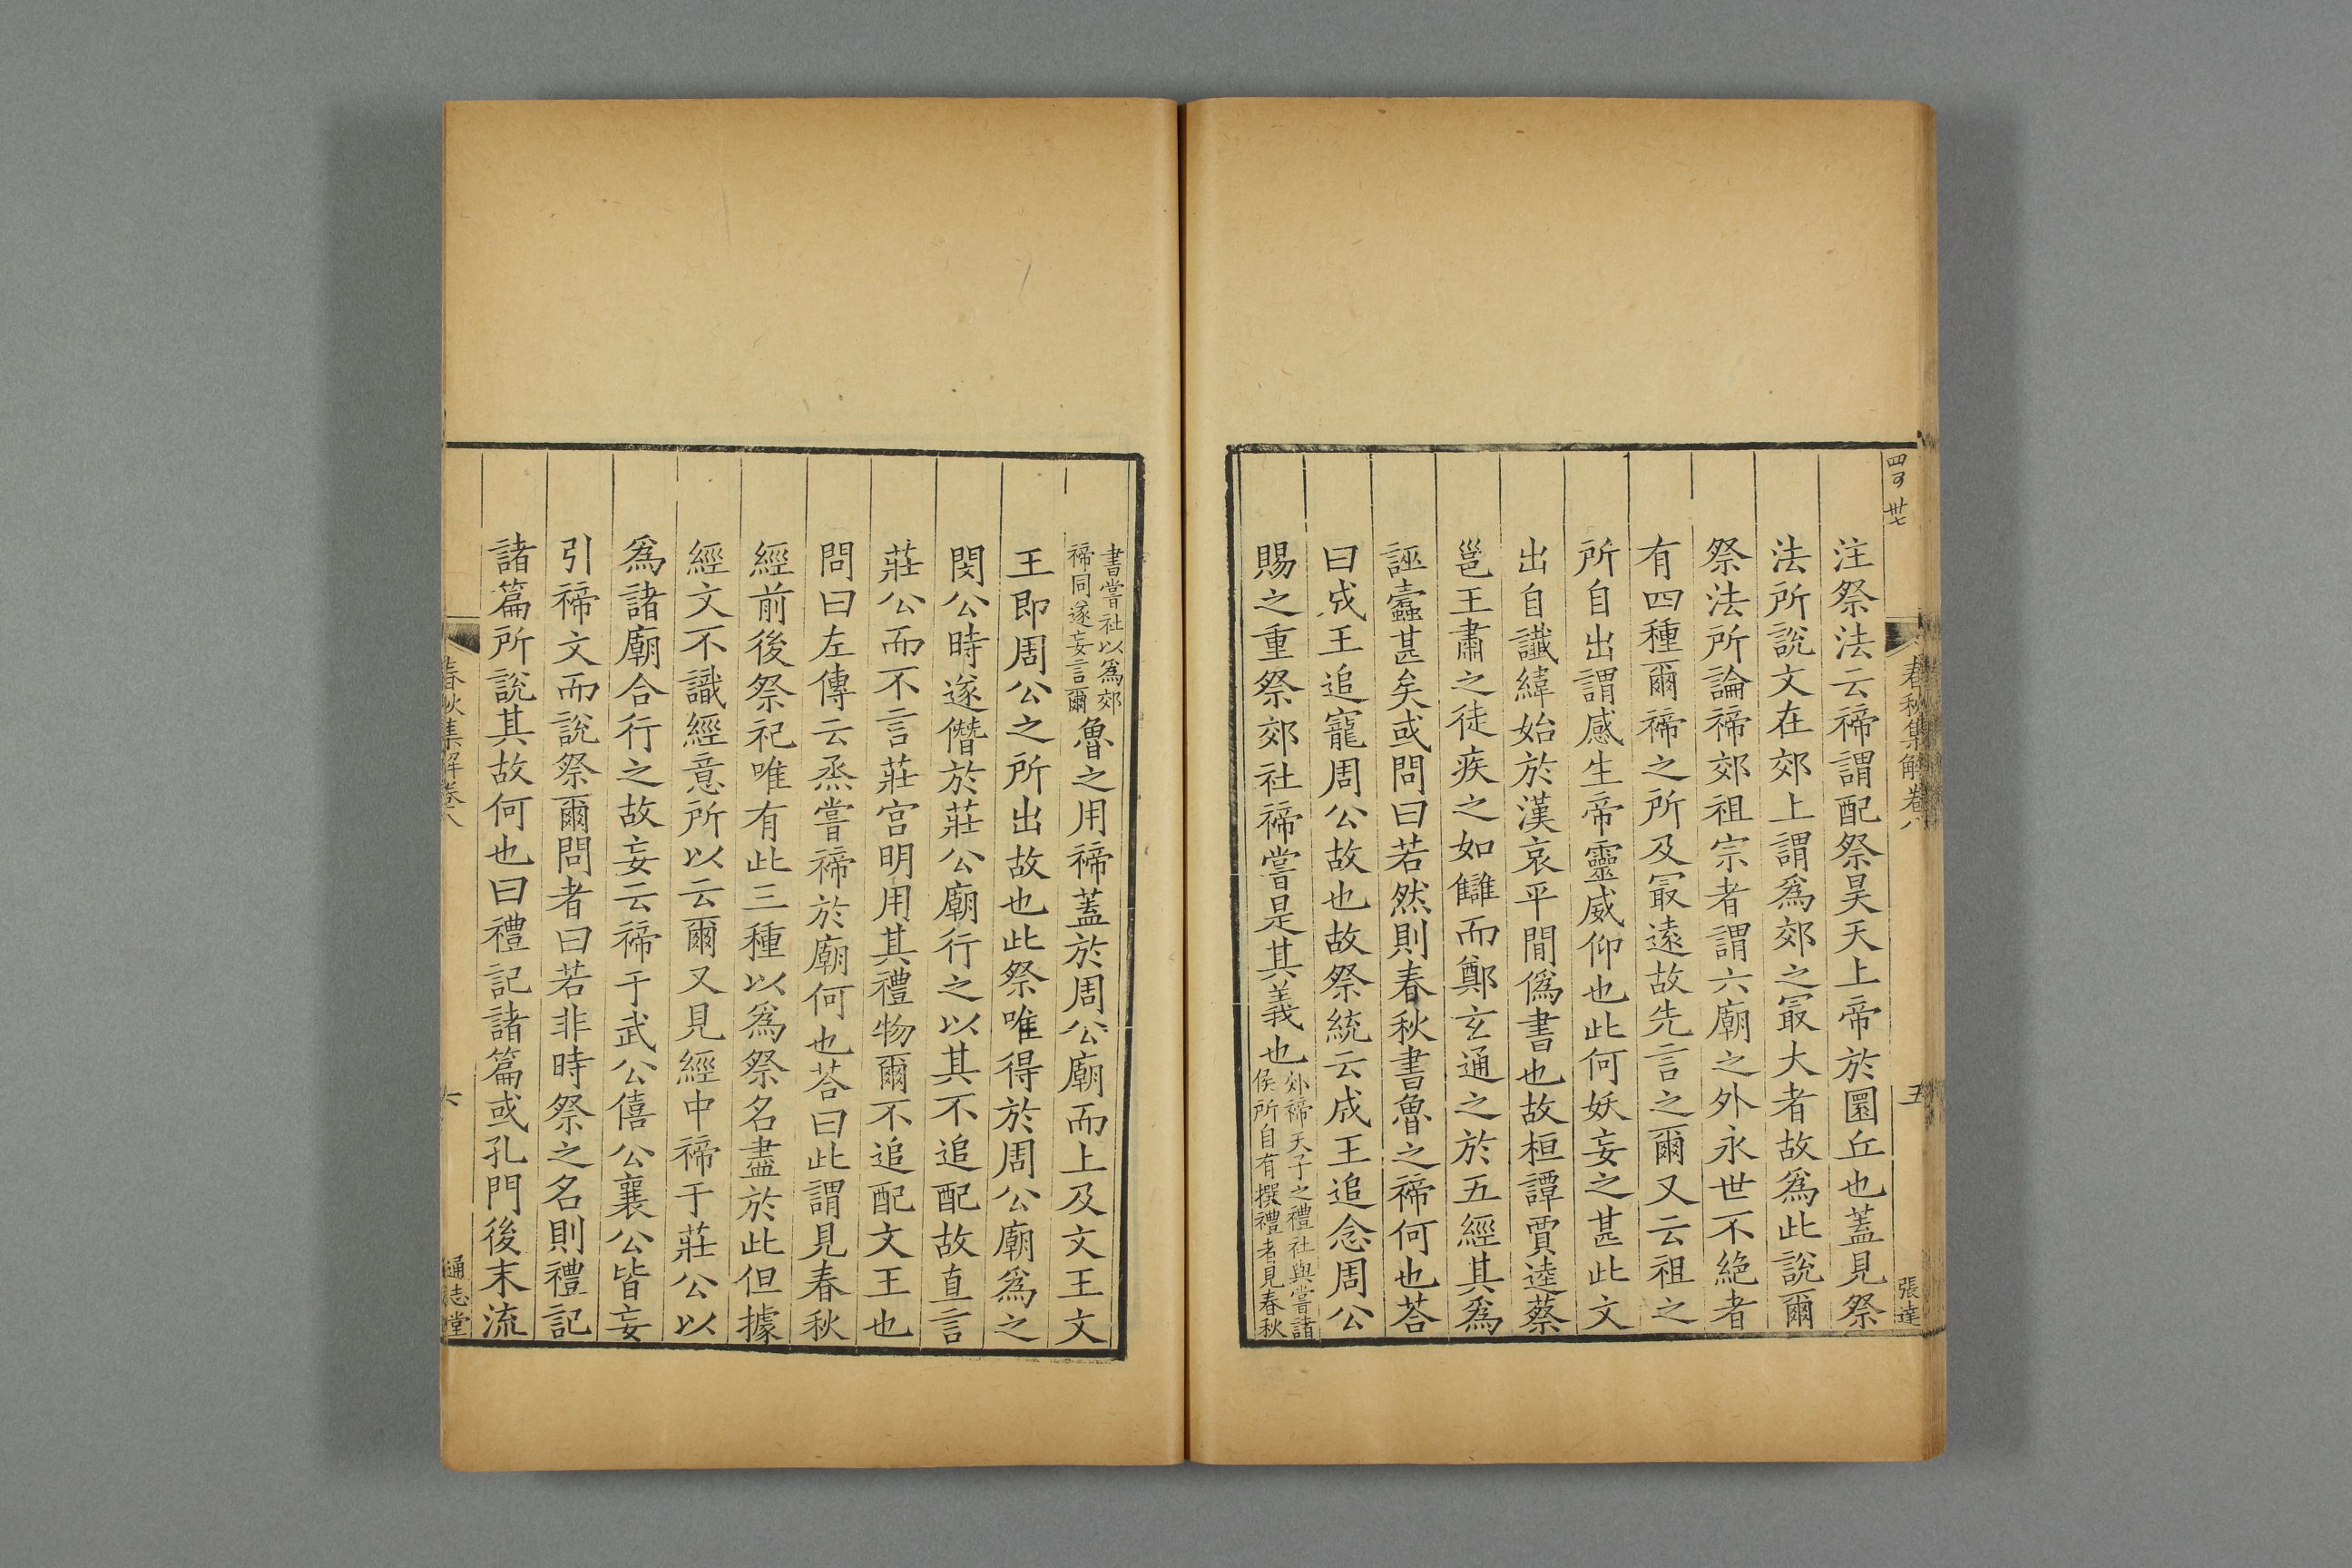 四百 卅七
春秋集解卷八
五
張達
注祭法云禘謂配祭昊天上帝於圜丘也蓋見祭
法所說文在郊上謂爲郊之㝡大者故爲此說爾
祭法所論禘郊祖宗者謂六廟之外永世不絶者
有四種爾禘之所及㝡遠故先言之爾又云祖之
所自出謂感生帝靈威仰也此何妖妄之甚此文
出自讖緯始於漢哀平間僞書也故桓譚賈逵蔡
邕王肅之徒疾之如讎而鄭玄通之於五經其爲
誣蠹甚矣或問曰若然則春秋書魯之禘何也荅
曰成王追寵周公故也故祭統云成王追念周公
賜之重祭郊社禘嘗是其義也郊禘天子之禮社與嘗諸侯所自有撰禮者見春秋
書嘗社以爲郊禘同遂妄言爾魯之用禘蓋於周公廟而上及文王文
王即周公之所出故也此祭唯得於周公廟爲之
閔公時遂僭於莊公廟行之以其不追配故直言
莊公而不言莊宮明用其禮物爾不追配文王也
問曰左傳云烝嘗禘於廟何也荅曰此謂見春秋
經前後祭祀唯有此三種以爲祭名盡於此但據
經文不識經意所以云爾又見經中禘于莊公以
爲諸廟合行之故妄云禘于武公僖公襄公皆妄
引禘文而說祭爾問者曰若非時祭之名則禮記
諸篇所說其故何也曰禮記諸篇或孔門後末流
春秋集解卷八
六
通志堂